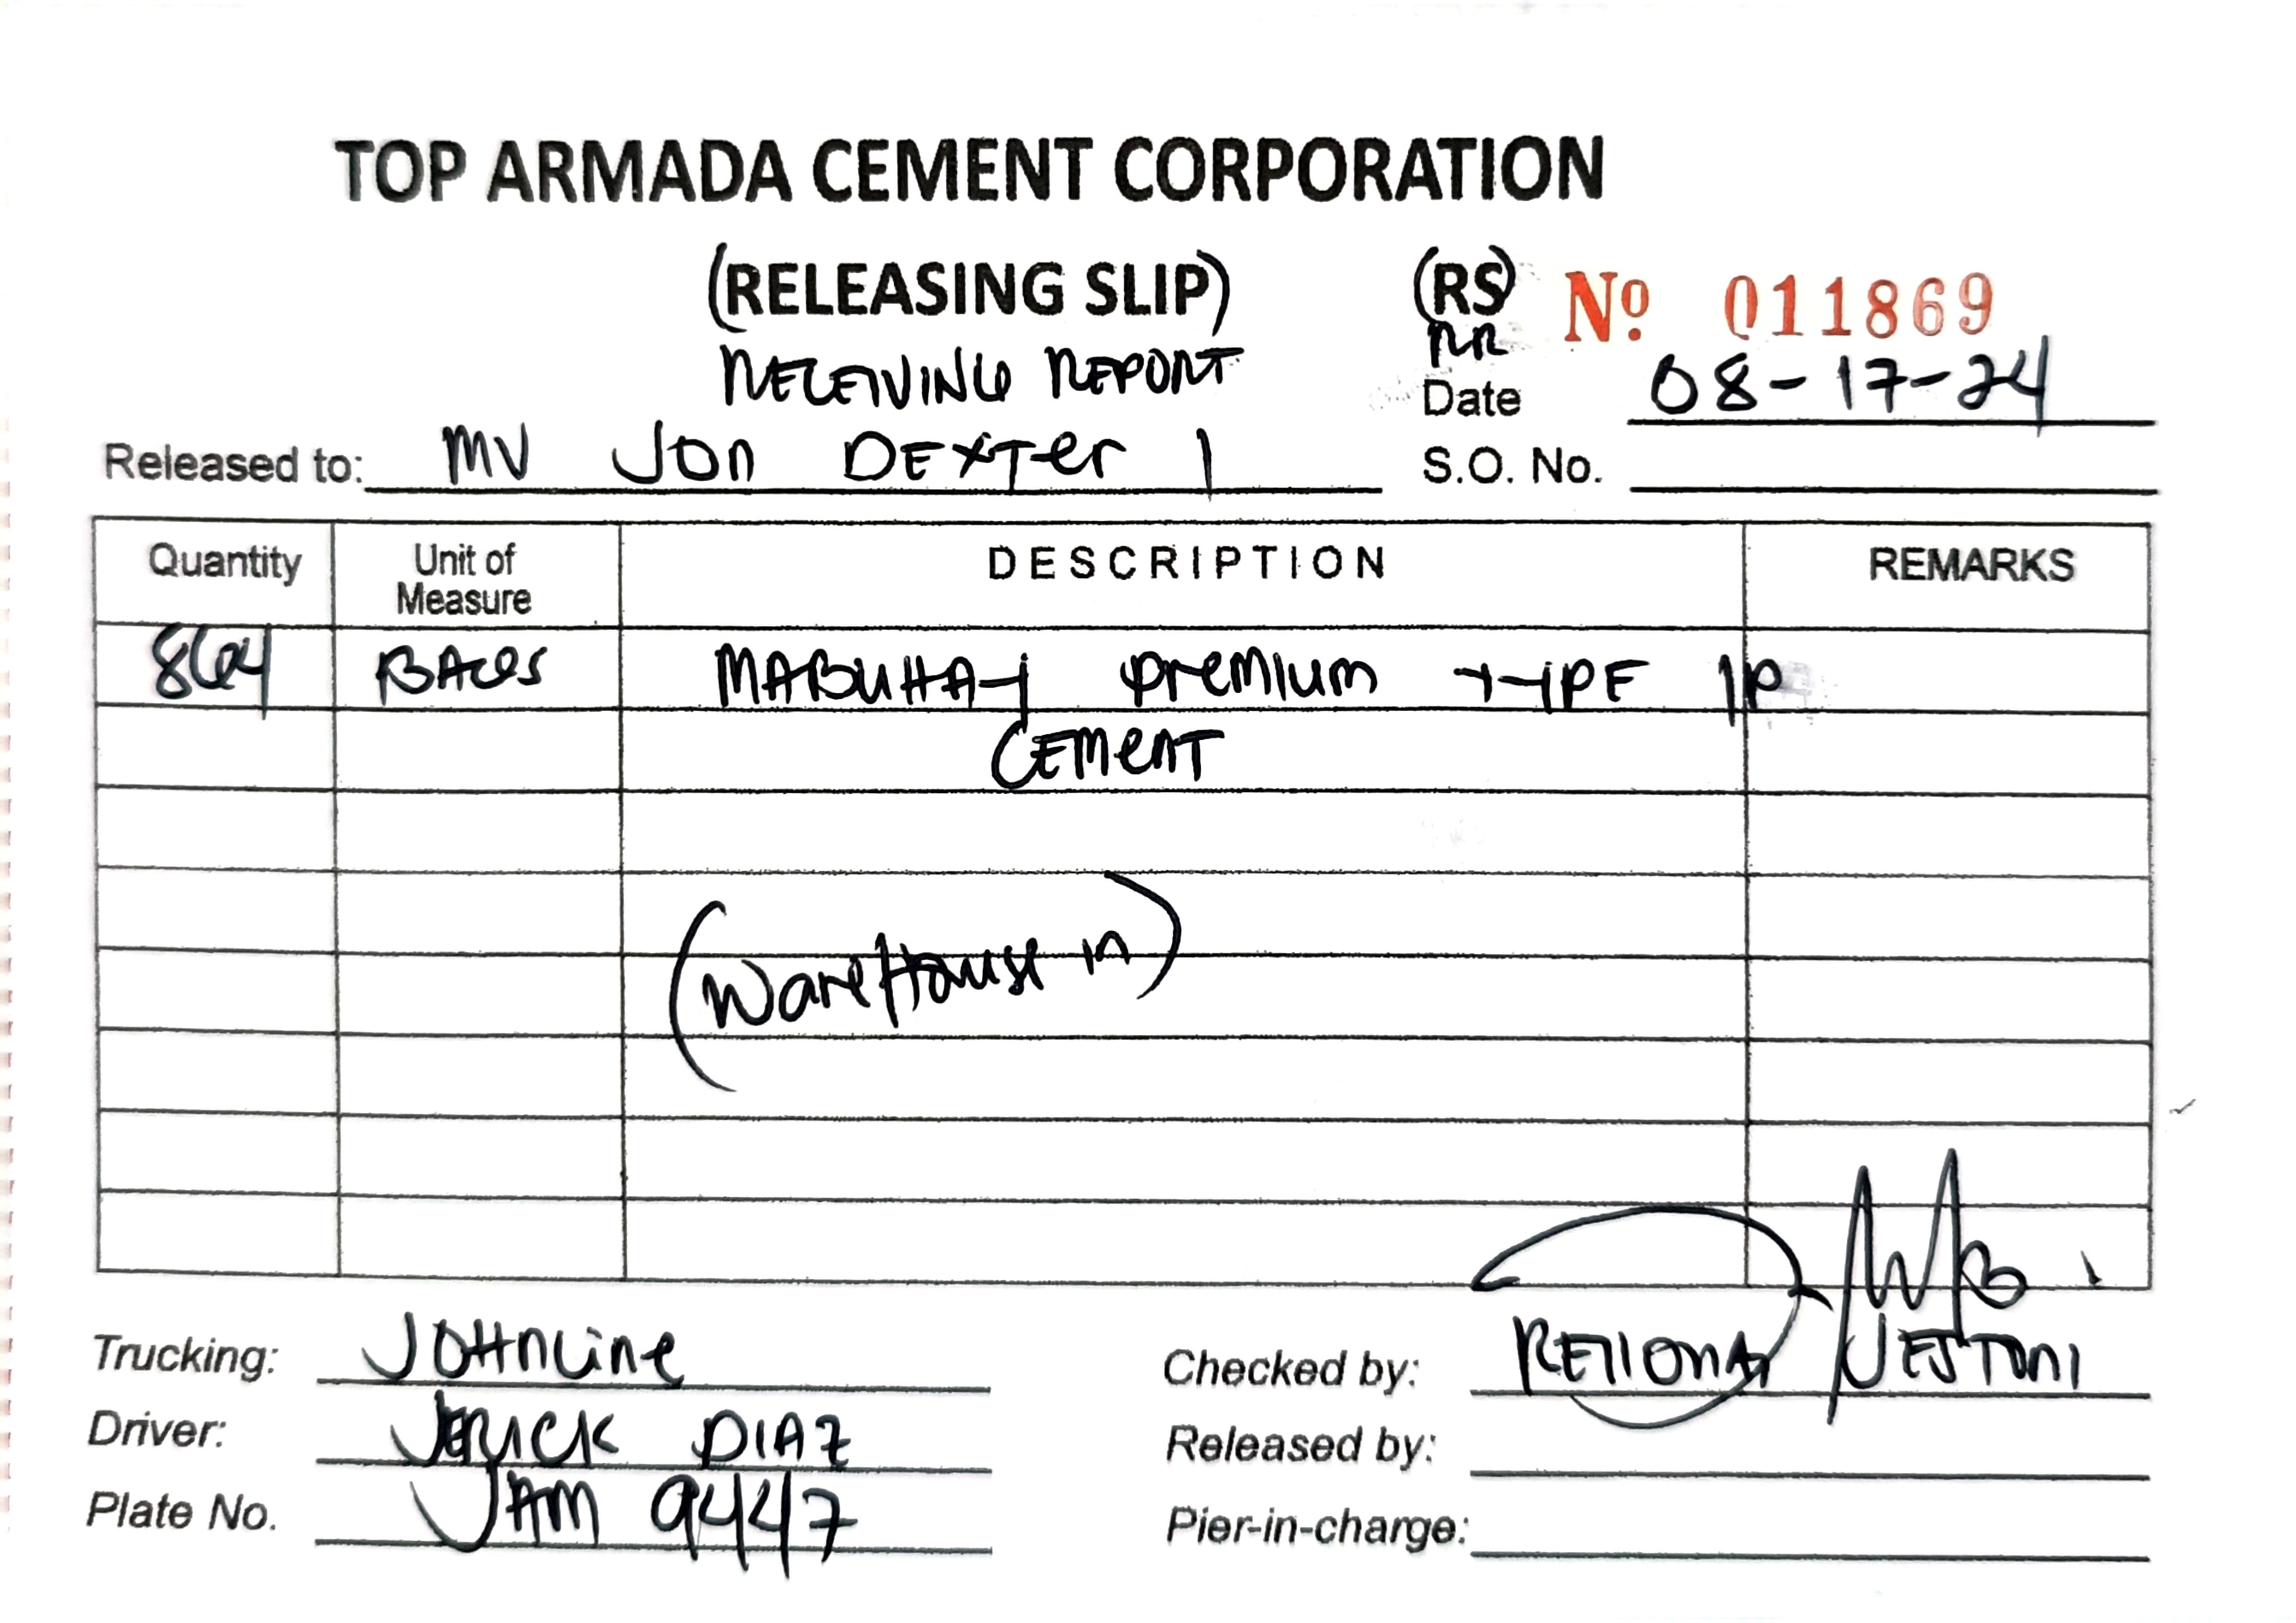 TOP ARMADA CEMENT CORPORATION
(RELEASING SLIP) (RS) Nº 011869
RECEIVING REPORT RR
Date 08-17-24
Released to: MV JON DEXTer 1 S.O. No.
Quantity Unit of Measure DESCRIPTION REMARKS
864 BAGS MABUHAY premium TYPE 1P
CEMenT
(WareHouse in)
Trucking: JOHnLine Checked by: JESTONI
Driver: JERICK DIAZ Released by:
Plate No. JAM 9447 Pier-in-charge: